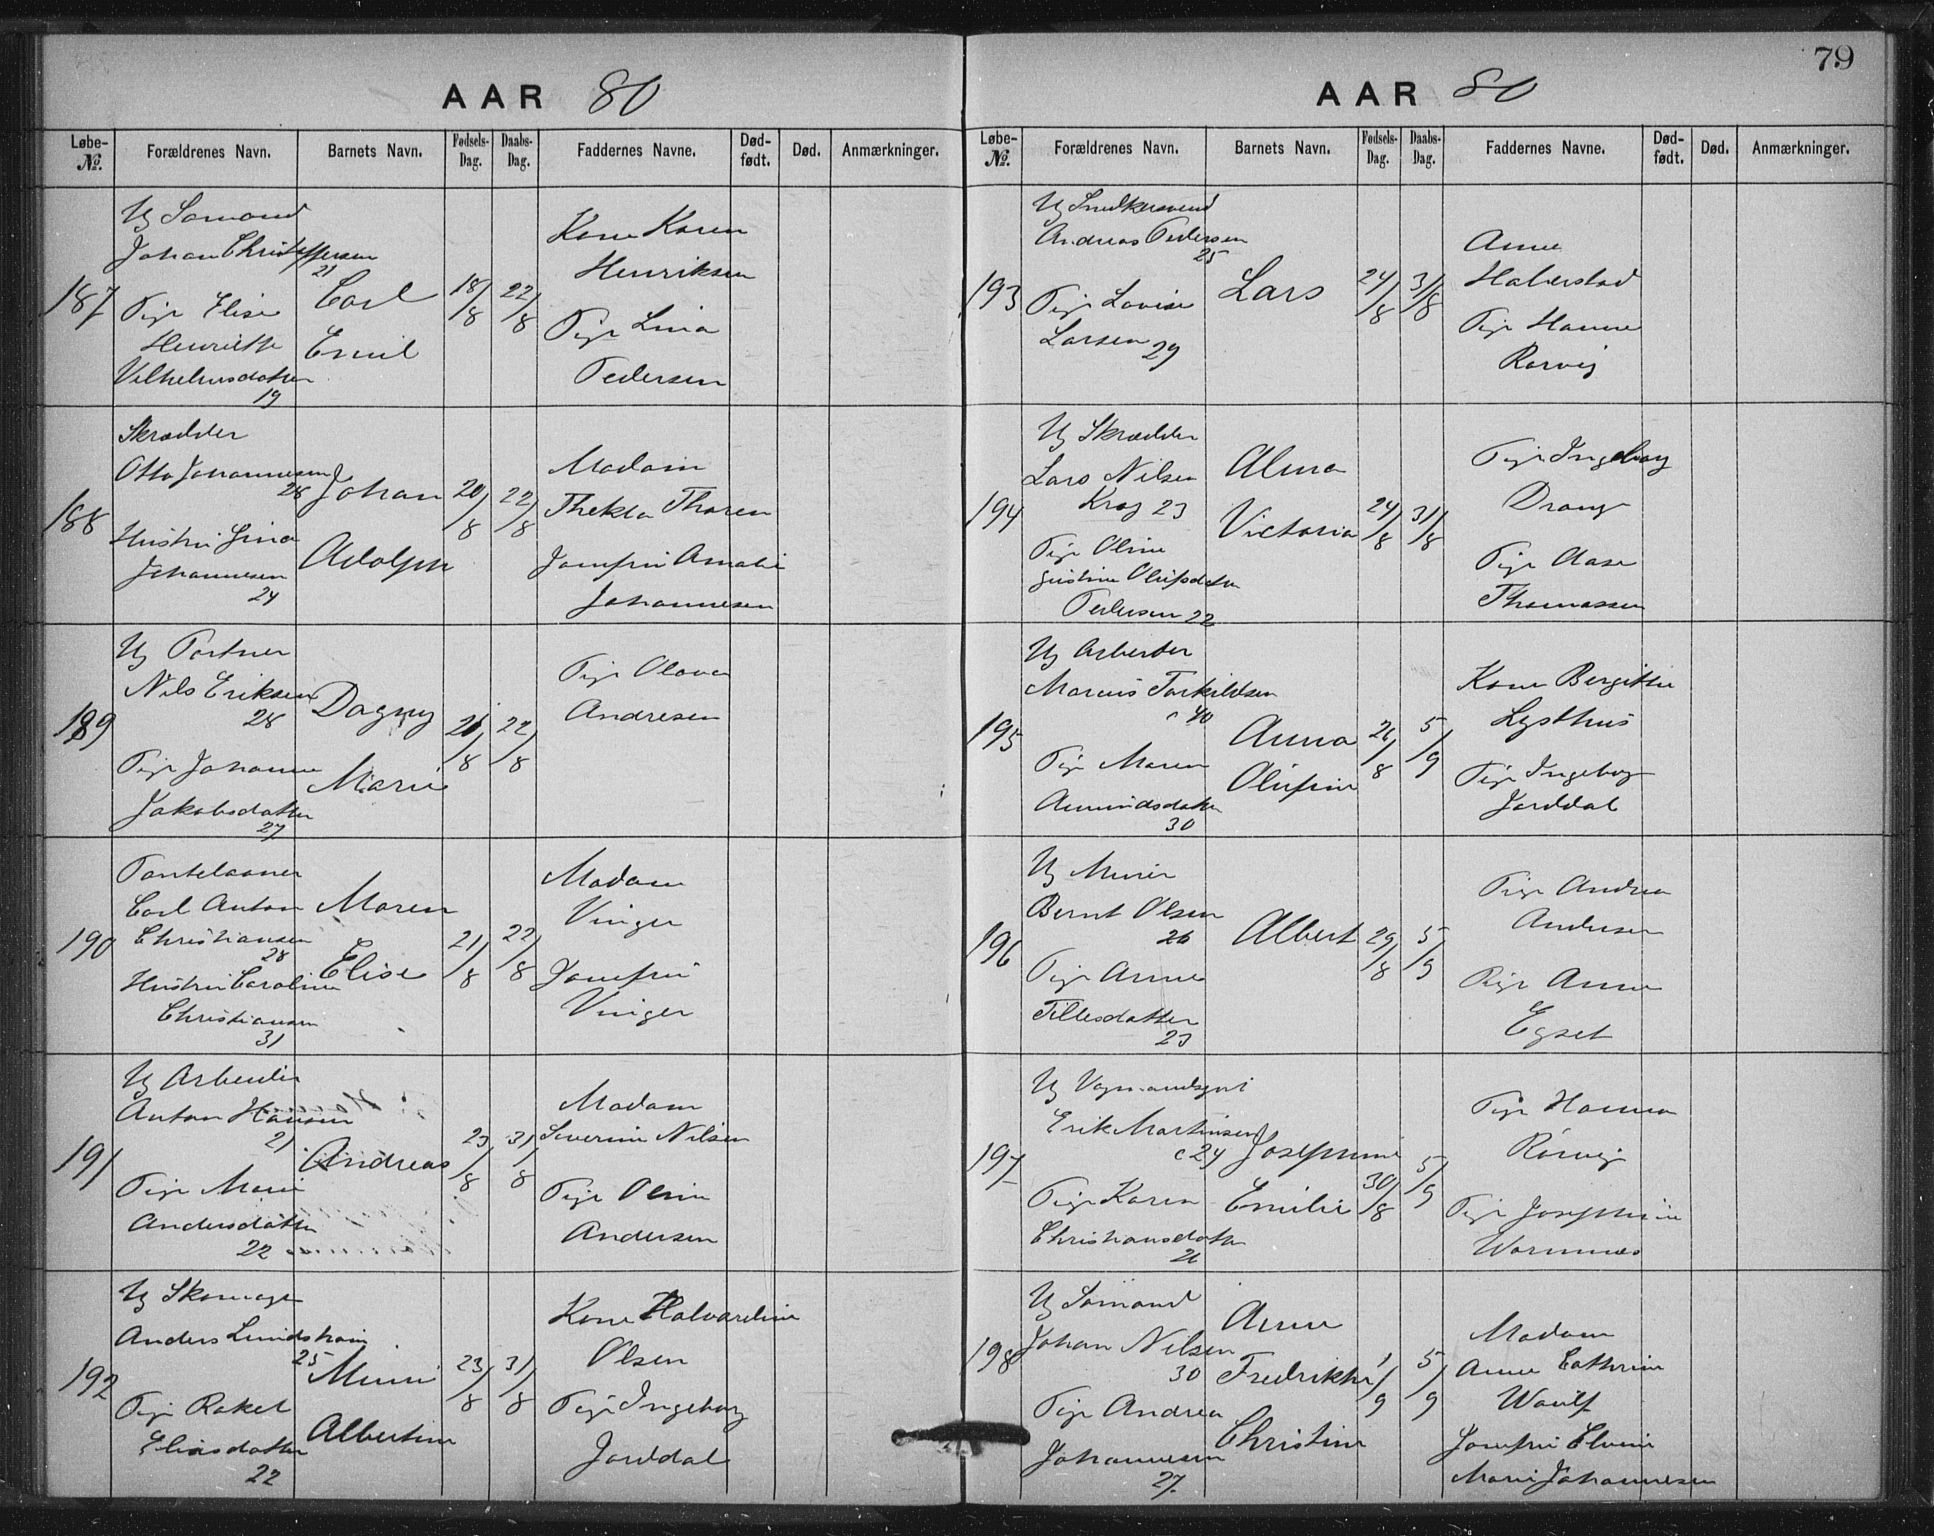 AAR 80
Løbe-No.
Forældrenes Navn.
Barnets Navn.
Fødsels-Dag.
Daabs-Dag.
Faddernes Navne.
Død-født.
Død.
Anmærkninger.
187
Ug Sømand
Johan Christoffersen
21
Pige Elise
Henriette
Vilhelmsdatter
19
Carl
Emil
18/8
22/8
Kone Karen
Henriksen
Pige Lina
Pedersen
188
Skrædder
Otto Johannesen
28
Hustru Lina
Johannesen
24
Johan
Adolph
20/8
22/8
Madam
Thekla Thoren
Jomfru Amalie
Johannesen
189
Ug Portner
Nils Eriksen
28
Pige Johanne
Jakobsdatter
27
Dagny
Marie
21/8
22/8
Pige Olava
Andresen
190
Carl Anton
Christiansen
28
Hustru Caroline
Christiansen
31
Maren
Elise
21/8
22/8
Madam
Vinger
Jomfru
Vinger
191
Ug Arbeider
Anton Hansen
21
Pige Marie
Andersdatter
22
Andreas
23/8
31/8
Madam
Severine Nilsen
Pige Oline
Andersen
192
Ug Skomager
Anders Lundsham
25
Pige Rakel
Eliasdatter
22
Minni
Albertine
23/8
31/8
Kone Halvardine
Olsen
Pige Ingeborg
Jorddal
79
AAR 80
Løbe-No.
Forældrenes Navn.
Barnets Navn.
Fødsels-Dag.
Daabs-Dag.
Faddernes Navne.
Død-født.
Død.
Anmærkninger.
193
Ug Snedkersvend
Andreas Pedersen
25
Pige Lovise
Larsen 29
Lars
24/8
31/8
Anne
Halvorstad
Pige Hanne
Rørvig
194
Ug Skrædder
Lars Nilsen
Krog 23
Pige Oline
Gustine Olufsdatter
Pedersen 22
Alma
Victoria
24/8
31/8
Pige Ingeborg
Drange
Pige Aase
Thomassen
195
Ug Arbeider
Marcus Torkildsen
c 40
Pige Maren
Amundsdatter
30
Anna
Olufine
26/8
5/9
Kone Bergitte
Lysthus
Pige Ingeborg
Jorddal
196
Ug Murer
Bernt Olsen
26
Pige Anne
Tillesdatter
23
Albert
29/8
5/9
Pige Andrea
Andersen
Pige Anne
Egset
197
Erik Martinsen
c 24
Pige Karen
Christiansdatter
26
Josephine
Emilie
30/8
5/9
Pige Hanna
Rørvig
Pige Josephine
Wormnæs
198
Ug Sømand
Johan Nilsen
30
Pige Andrea
Johannesen
27.
Anne
Fredrikke
Christine
1/9
5/9
Madam
Anne Cathrine
Woulf
Jomfru Elvine
Marie Johannesen